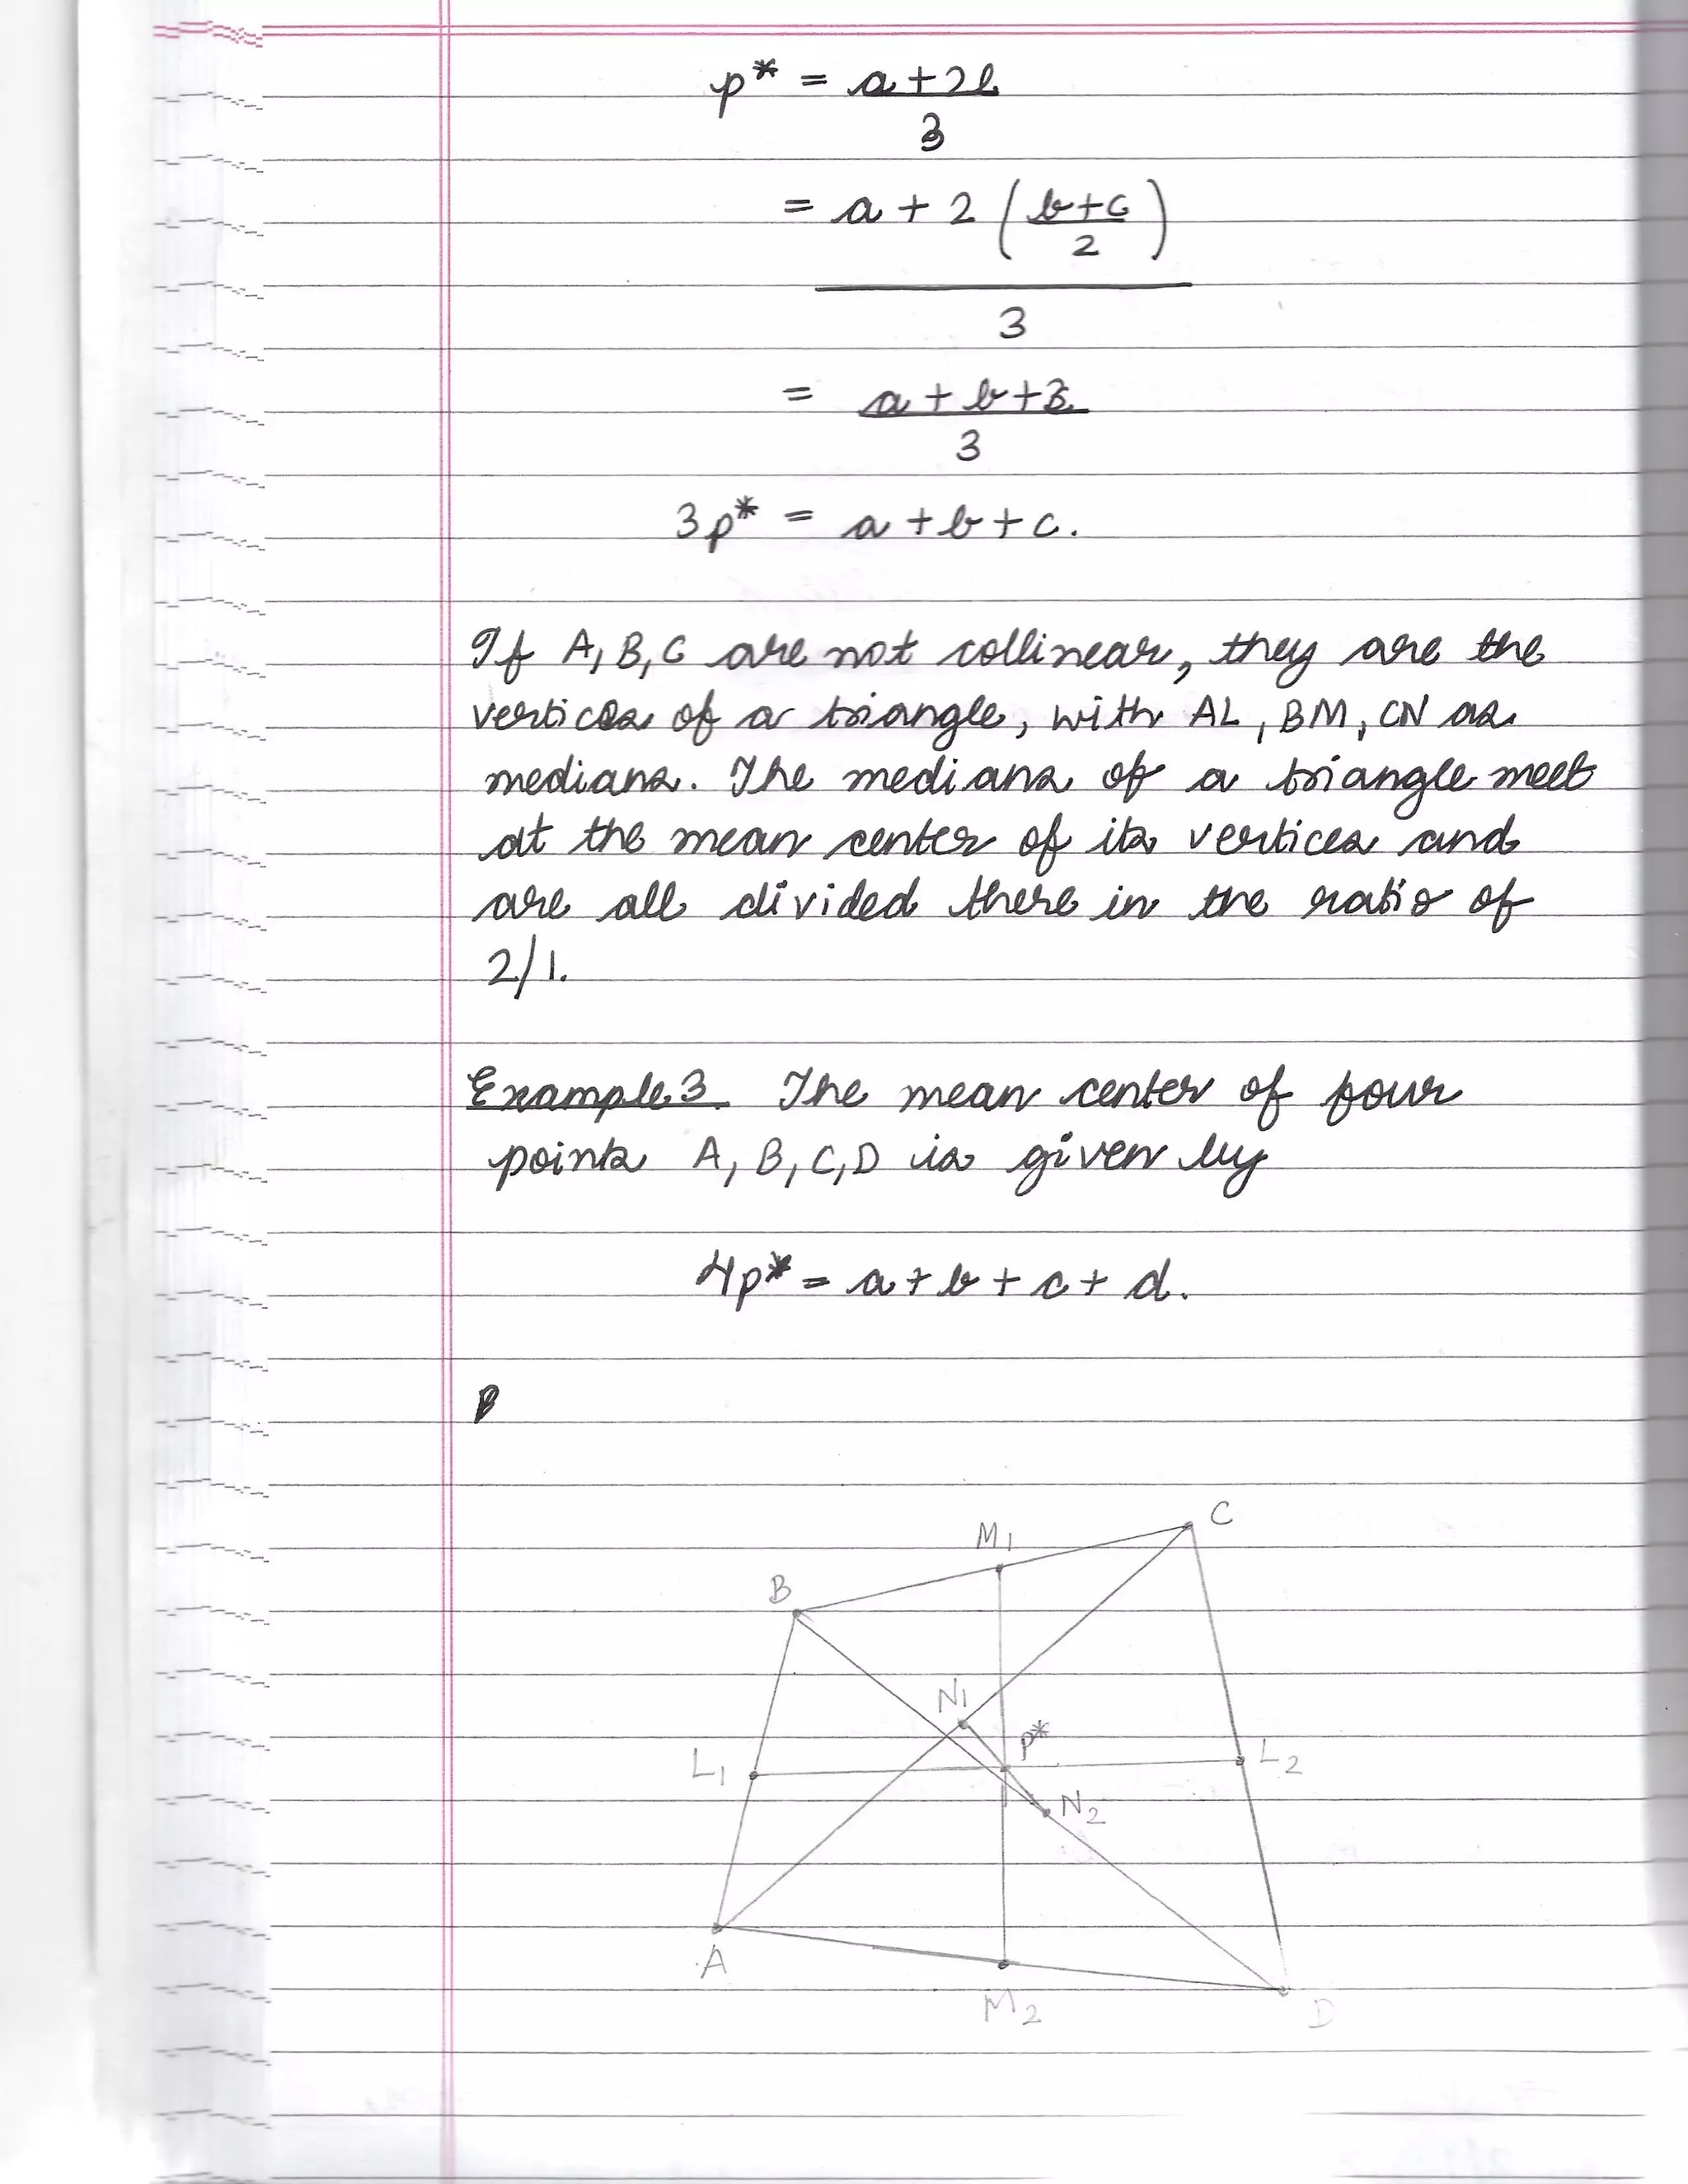 p* = a+2l
3
= a + 2 (b+c
2)
3
= a+b+3
3
3p* = a+b+c.
If A, B, C are not collinear, they are the
vertices of a triangle, with AL, BM, CN as
medians. The medians of a triangle meet
at the mean center of its vertices and
are all divided there in the ratio of
2/1.
Example 3. The mean center of four
points A, B, C, D is given by
4p* = a+b+c+d.
C
M1
B
N1
p*
L1
L2
N2
A
M2
D